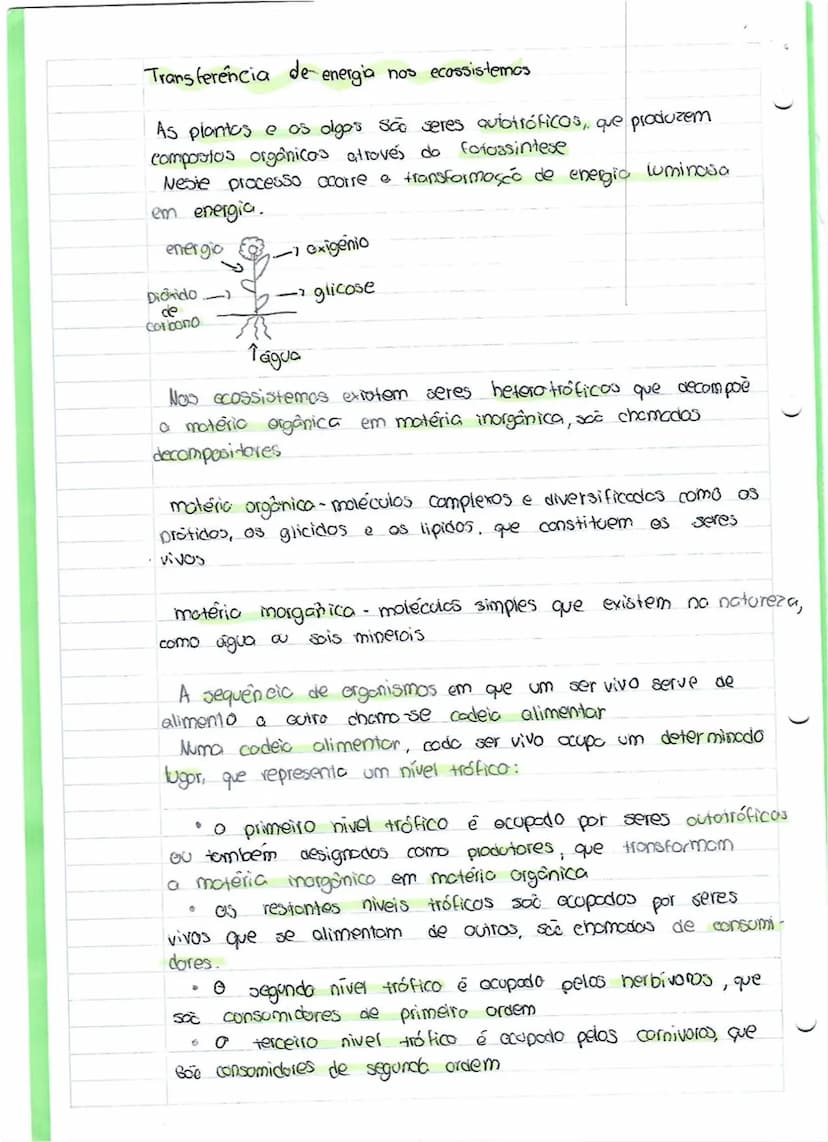 Transferência de energia nos ecossistemas
As plantas e as algas são seres autotróficos, que produzem
compostos orgânicos através da fotossintese
Neste processo ocorre a transformação de energia luminosa
em energia.
energia → oxigénio
Dióxido → → glicose
de
carbono
↑ água
Nos ecossistemas existem seres heterotróficos que decompoê
a matéria orgânica em matéria inorgânica, saõ chamados
decompositores
matéria orgânica - moléculas complexas e diversificadas como os
prótidos, os glícidos e os lípidos, que constituem os seres
vivos
matéria inorgânica - moléculas simples que existem na natureza,
como água ou sais minerais
A sequência de organismos em que um ser vivo serve de
alimento a outro chama-se cadeia alimentar
Numa cadeia alimentar, cada ser vivo ocupa um determinado
lugar, que representa um nível trófico:
• o primeiro nível trófico é ocupado por seres autotróficos
ou também designados como produtores, que transformam
a matéria inorgânica em matéria orgânica
• os restantes níveis tróficos saõ ocupados por seres
vivos que se alimentam de outros, são chamados de consumi-
dores.
• O segundo nível trófico é ocupado pelos herbívoros, que
saõ consumidores de primeira ordem
• O terceiro nível trófico é ocupado pelos carnívoros, que
são consumidores de segunda ordem